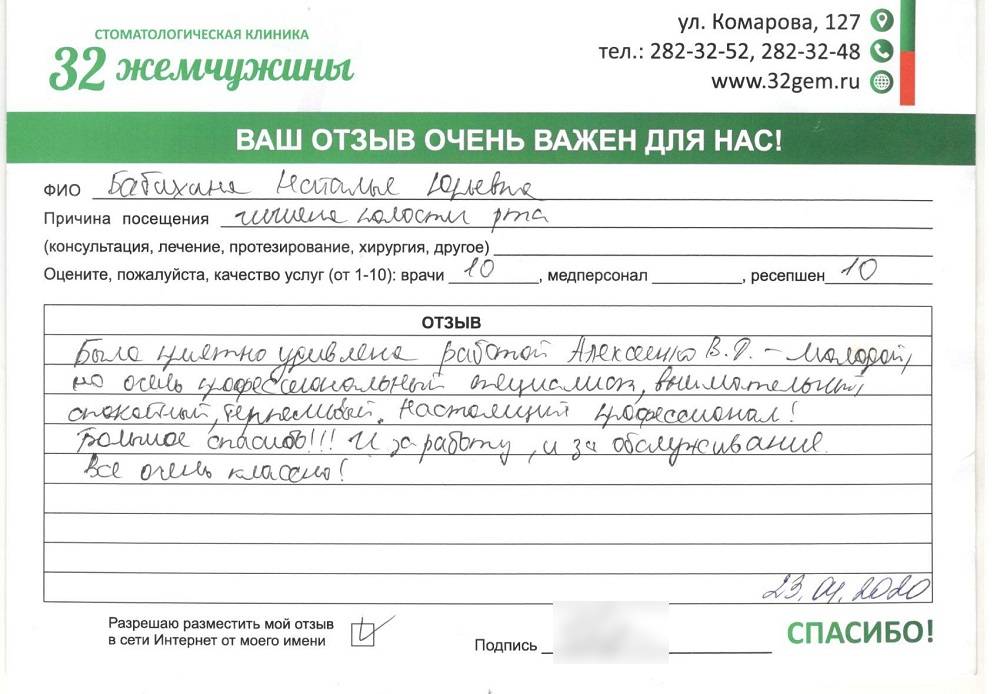 СТОМАТОЛОГИЧЕСКАЯ КЛИНИКА
32 жемчужины
ул. Комарова, 127
тел.: 282-32-52, 282-32-48
www.32gem.ru
ВАШ ОТЗЫВ ОЧЕНЬ ВАЖЕН ДЛЯ НАС!
ФИО Наталья Юрьевна
Причина посещения гигиена полости рта
(консультация, лечение, протезирование, хирургия, другое)
Оцените, пожалуйста, качество услуг (от 1-10): врачи 10, медперсонал, ресепшен 10
ОТЗЫВ
Была приятно удивлена работой Алексеенко В. – Молодой,
но очень профессиональный специалист, внимательный,
спокойный, терпеливый. Настоящий профессионал!
Большое спасибо!!! И за работу, и за обслуживание.
Все очень классно!
23. 2020
Разрешаю разместить мой отзыв
в сети Интернет от моего имени
Подпись
СПАСИБО!